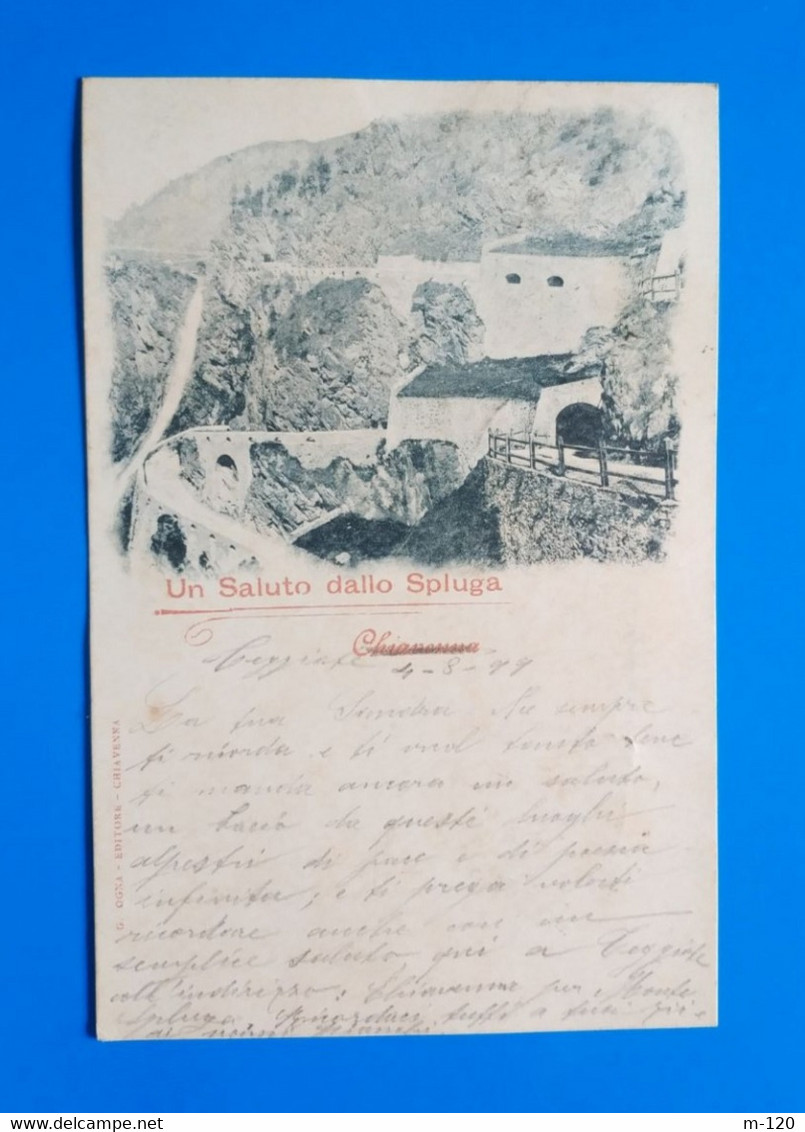 Un Saluto dallo Spluga
Chiavenna
Teggiate 4-8-99
La tua Sandra che sempre
ti ricorda e ti vuol tanto bene
ti manda ancora un saluto,
un bacio da questi luoghi
alpestri di pace e di poesia
infinita; e ti prega volerti
ricordare anche con un
semplice saluto qui a Teggiate
coll'indirizzo: Chiavenna per Monte
Spluga. tutti a tuoi
G. OGNA - EDITORE - CHIAVENNA
Delcampe.net
m-120